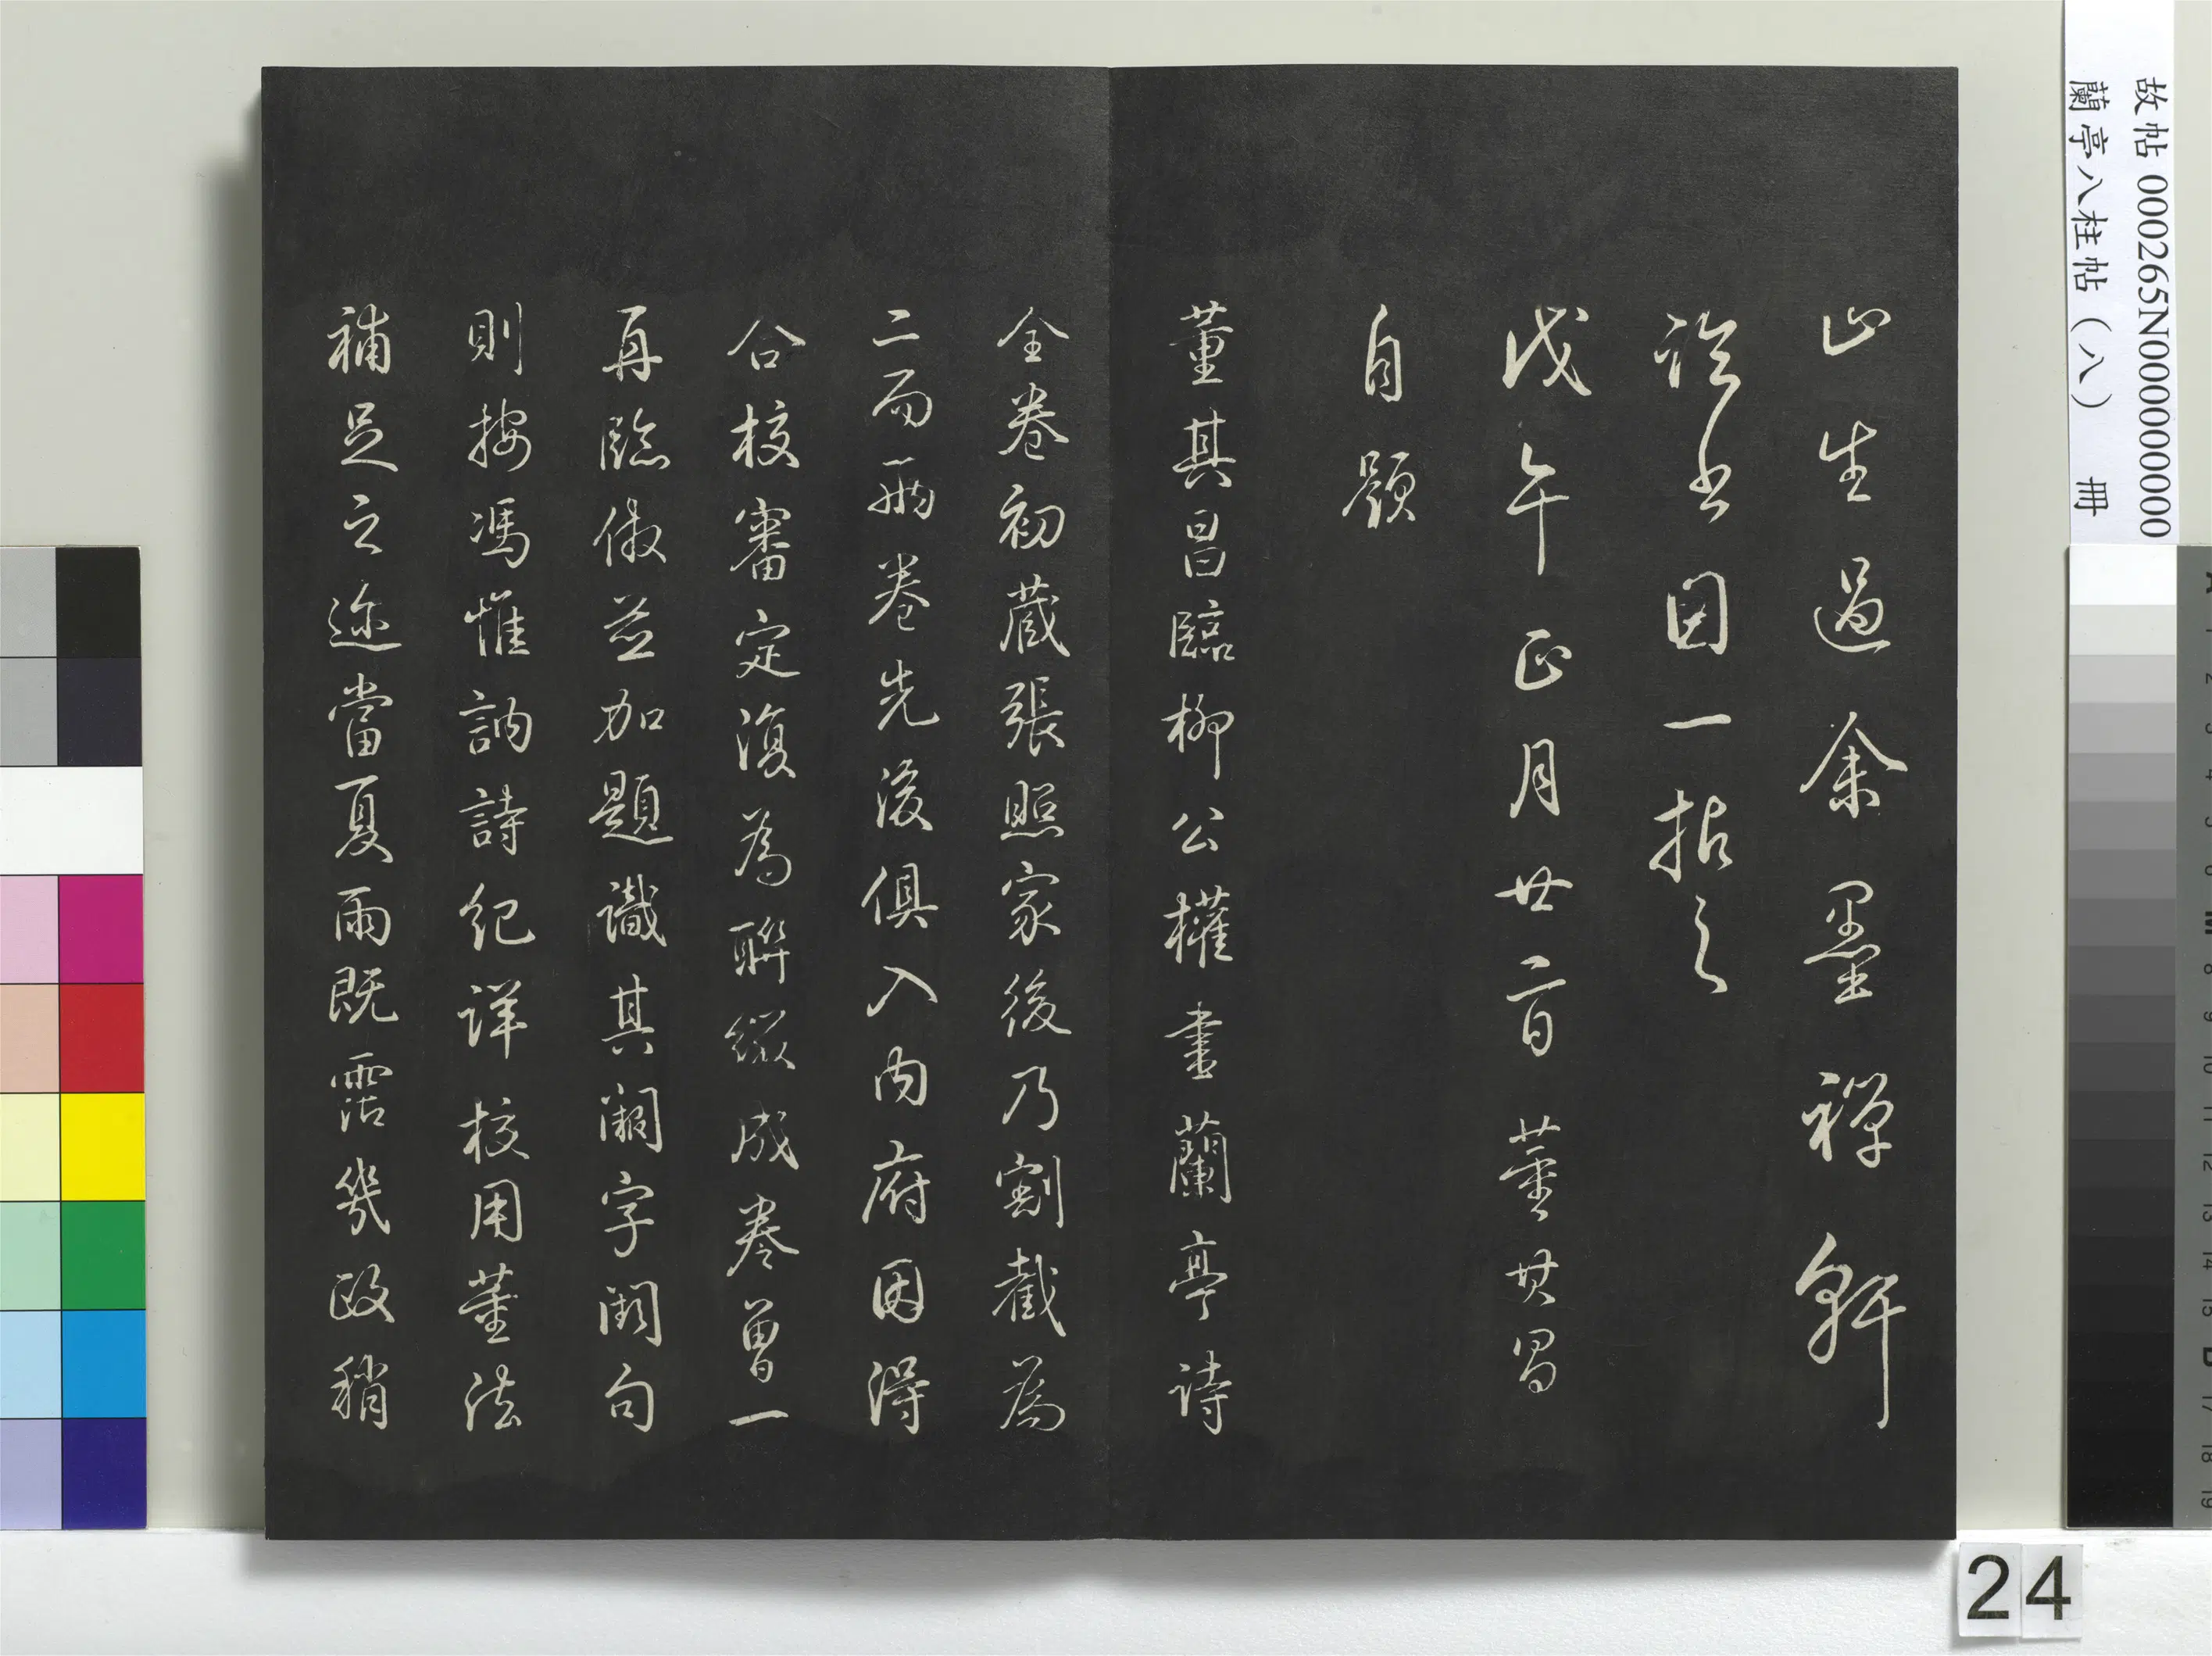 山生過余墨禪軒
論書因一拈之
戊午正月廿二日董其昌
自題
董其昌臨柳公權書蘭亭詩
全卷初藏張照家後乃割截為
二而兩卷先後俱入內府因得
合校審定復為聯綴成卷曾一
再臨倣並加題識其漏字闕句
則按馮惟訥詩紀詳校用董法
補足之近當夏雨既霑幾政稍
故帖 000265N000000000
蘭亭八柱帖(八) 冊
24